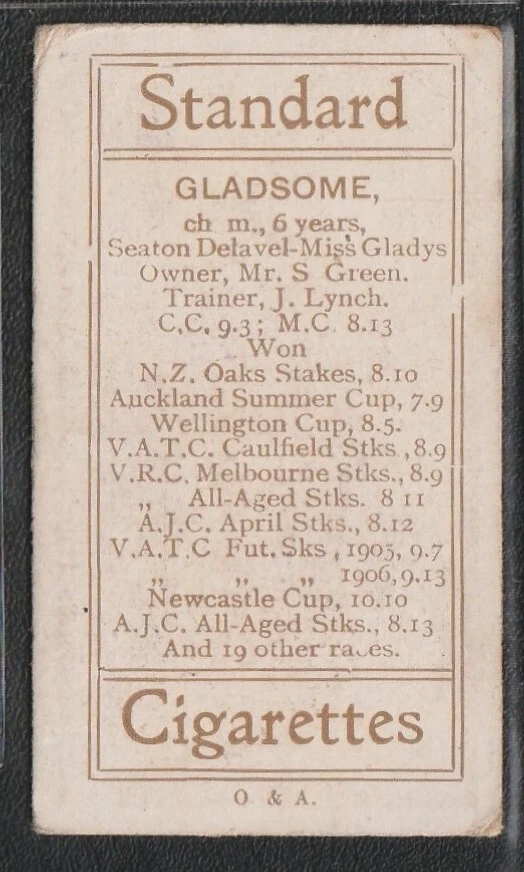 Standard
GLADSOME,
ch m., 6 years,
Seaton Delavel-Miss Gladys
Owner, Mr. S Green.
Trainer, J. Lynch.
C.C. 9.3; M.C. 8.13
Won
N.Z. Oaks Stakes, 8.10
Auckland Summer Cup, 7.9
Wellington Cup, 8.5.
V.A.T.C. Caulfield Stks., 8.9
V.R.C. Melbourne Stks., 8.9
„ All-Aged Stks. 8 11
A.J.C. April Stks., 8.12
V.A.T.C Fut. Sks, 1905, 9.7
„ „ „ 1906, 9.13
Newcastle Cup, 10.10
A.J.C. All-Aged Stks., 8.13
And 19 other races.
Cigarettes
O & A.